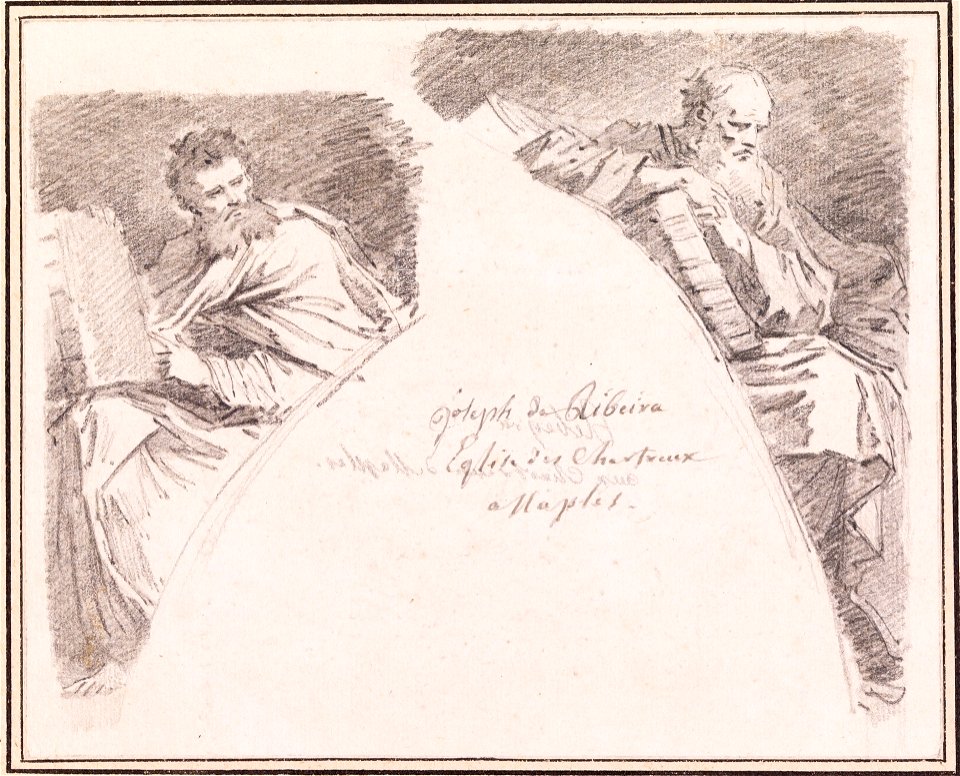 Joseph de Ribeira
Eglise des Chartreux
a Naples.